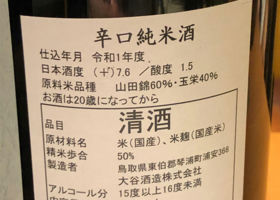 辛口純米酒
仕込年月 令和1年度
日本酒度 (+)7.6 /酸度 1.5
原料米品種 山田錦60%・玉栄40%
お酒は20歳になってから
品目 清酒
原材料名 米(国産)、米麹(国産米)
精米歩合 50%
製造者 鳥取県東伯郡琴浦町浦安368
大谷酒造株式会社
アルコール分 15度以上16度未満